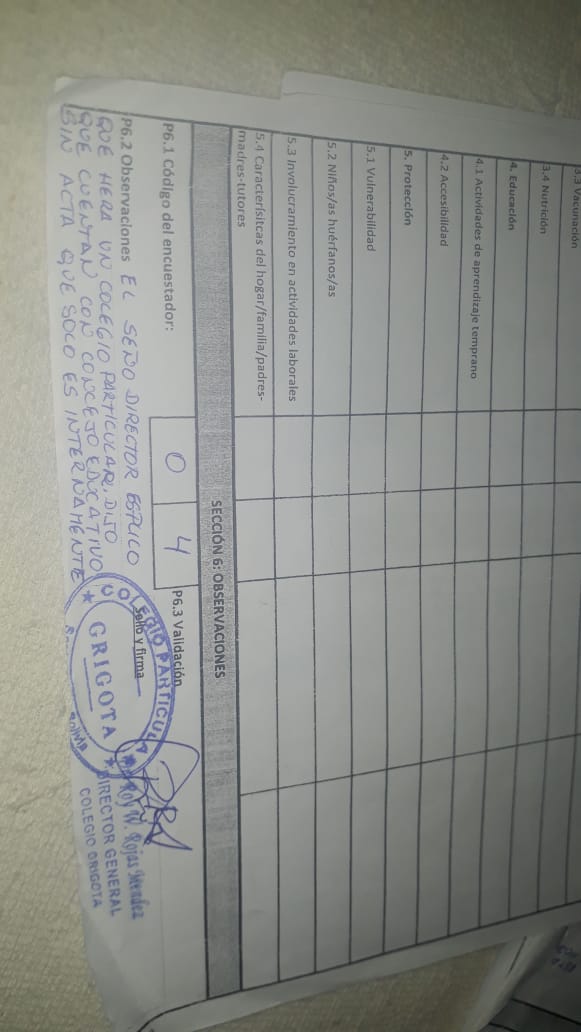 3.3 Vacunación
3.4 Nutrición
4. Educación
4.1 Actividades de aprendizaje temprano
4.2 Accesibilidad
5. Protección
5.1 Vulnerabilidad
5.2 Niños/as huérfanos/as
5.3 Involucramiento en actividades laborales
5.4 Caracterísitcas del hogar/familia/padres-
madres-tutores
SECCIÓN 6: OBSERVACIONES
P6.1 Código del encuestador: 0 4 P6.3 Validación
P6.2 Observaciones EL SEÑO DIRECTOR ESPLICO
QUE HERA UN COLEGIO PARTICULAR, DIJO
QUE CUENTAN CON CONCEJO EDUCATIVO
SIN ACTA QUE SOLO ES INTERNAMENTE
Sello y firma
COLEGIO PARTICULAR
GRIGOTA
Bolivia
Roy W. Rojas Mendez
DIRECTOR GENERAL
COLEGIO GRIGOTA